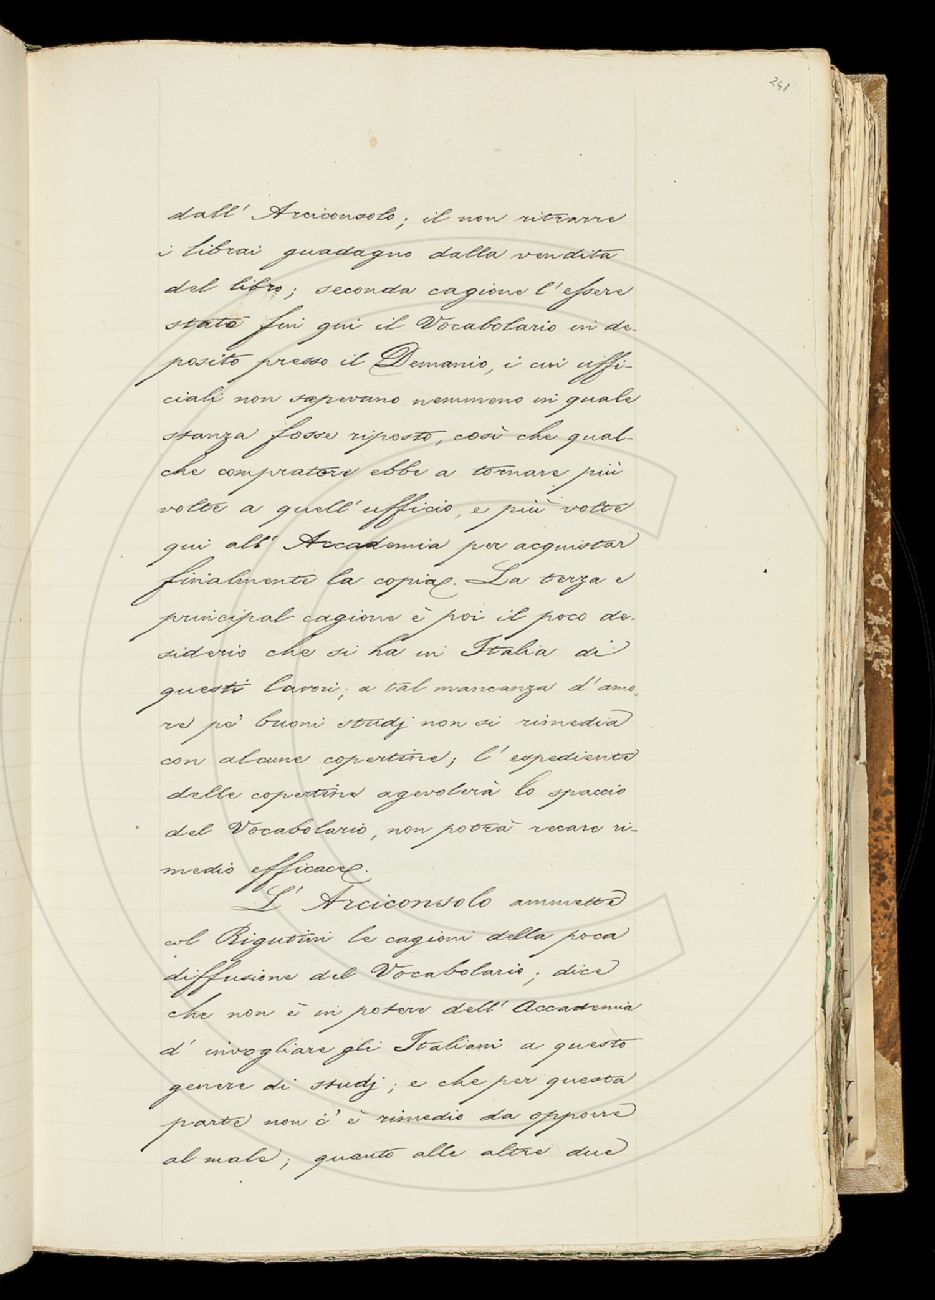 241
dall' Arciconsolo; il non ritrarre
i librai guadagno dalla vendita
del libro; seconda cagione l'essere
stato fin qui il Vocabolario in de-
posito presso il Demanio, i cui uffi-
ciali non sapevano nemmeno in quale
stanza fosse riposto, così che qual-
che compratore ebbe a tornare più
volte a quell' ufficio, e più volte
qui all' Accademia per acquistar
finalmente la copia. La terza e
principal cagione è poi il poco de-
siderio che si ha in Italia di
questi lavori; a tal mancanza d'amo-
re pe' buoni studj non si rimedia
con alcune copertine; l' espediente
delle copertine agevolerà lo spaccio
del Vocabolario, non potrà recare ri-
medio efficace.
L' Arciconsolo ammette
col Rigutini le cagioni della poca
diffusione del Vocabolario; dice
che non è in potere dell' Accademia
d' invogliare gli Italiani a questo
genere di studj; e che per questa
parte non c' è rimedio da opporre
al male; quanto alle altre due